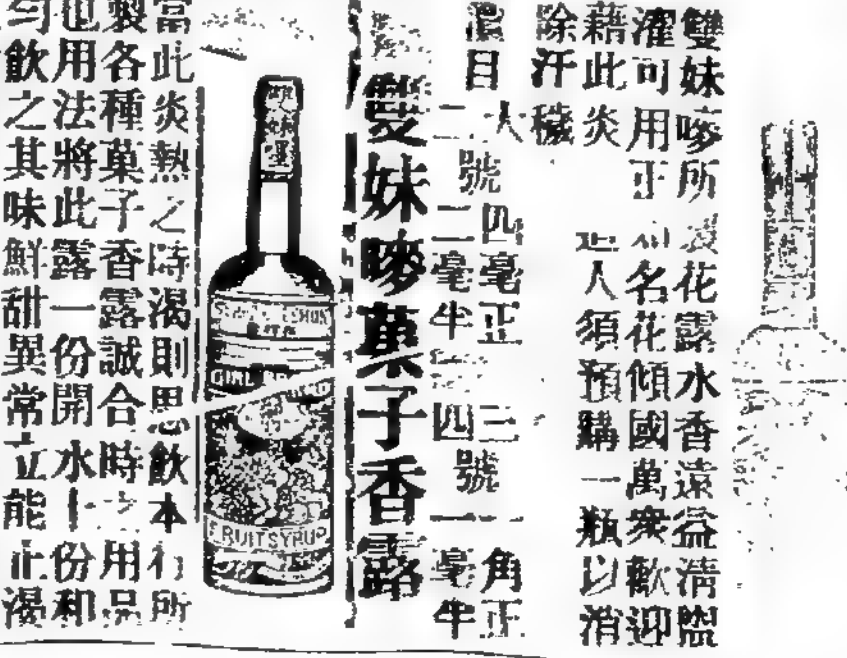 雙妹嘜所製花露水香遠益清盥
濯可用正名花傾國萬衆歡迎
藉此炎人須預購一瓶以消
除汗穢
價目
大號四毫正 三號一角正
二號二毫半 四號一毫半
雙妹嘜菓子香露
雙妹嘜
GIRL
FRUIT SYRUP
當此炎熱之時渴則思飲本行所
製各種菓子香露誠合時之用品
也用法將此露一份開水十份和
勻飲之其味鮮甜異常立能止渴